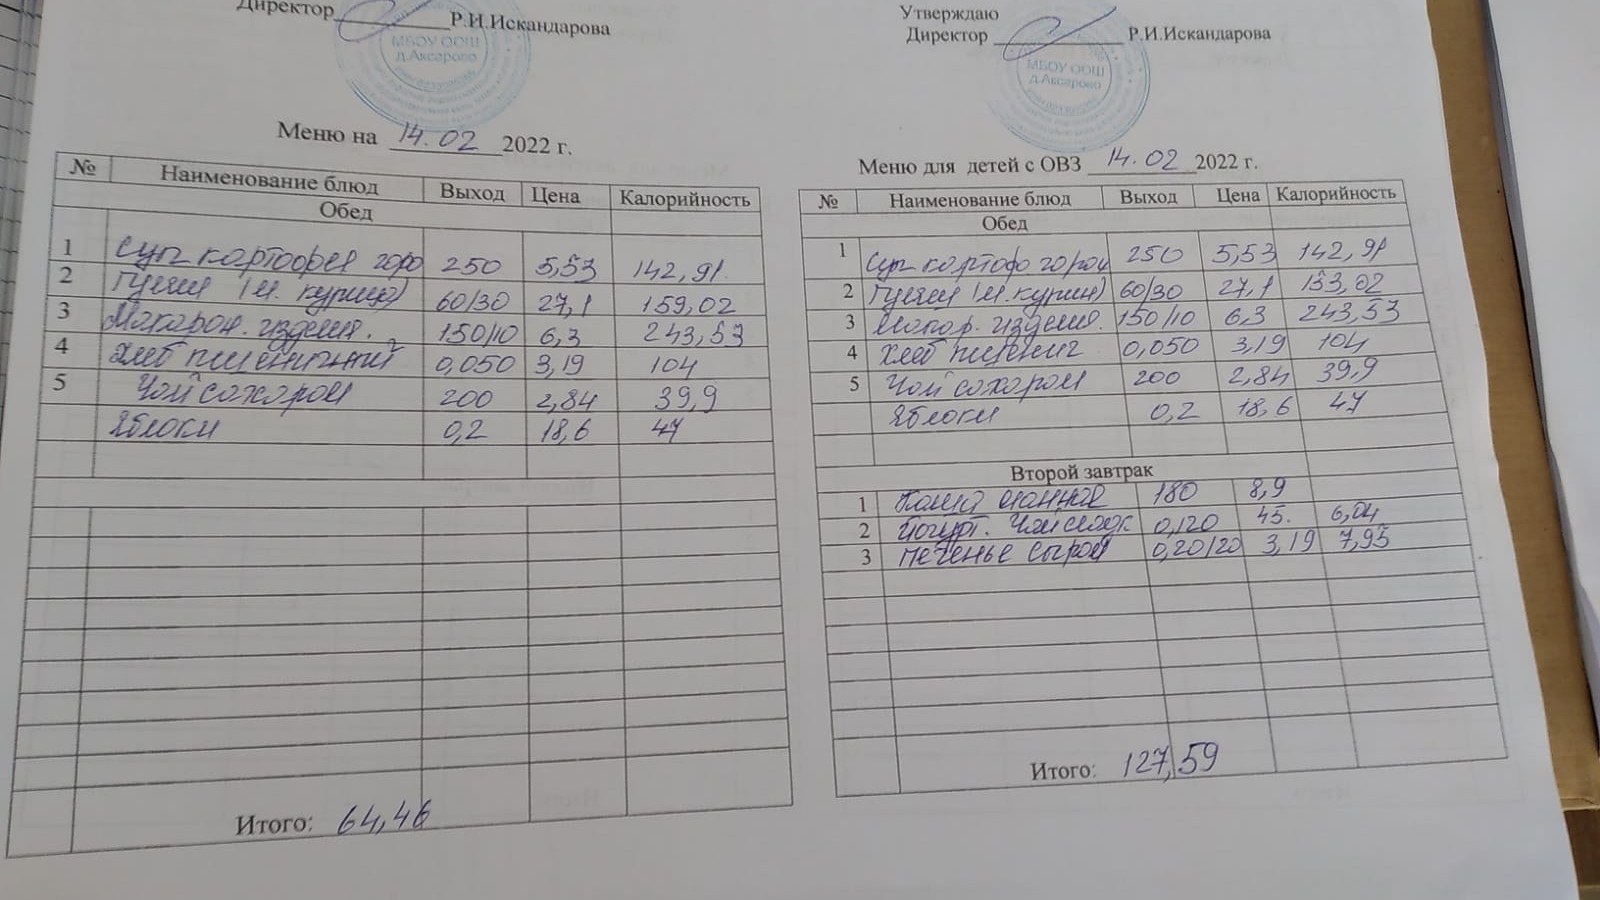 Директор Р.И.Искандарова
МБОУ ООШ
д.Аксарово
Меню на 14.02 2022 г.
№ Наименование блюд Выход Цена Калорийность
Обед
1 Суп картофел горо 250 5,53 142,91
2 Гуляш (м. куриц) 60/30 27,1 159,02
3 Макарон. изделия. 150/10 6,3 243,53
4 Хлеб пшеничный 0,050 3,19 104
5 Чай сахаром 200 2,84 39,9
Яблоки 0,2 18,6 47
Итого: 64,46
Утверждаю
Директор Р.И.Искандарова
МБОУ ООШ
д.Аксарово
Меню для детей с ОВЗ 14.02 2022 г.
№ Наименование блюд Выход Цена Калорийность
Обед
1 Суп картофо горох 250 5,53 142,91
2 Гуляш (м.курин) 60/30 27,1 153,02
3 Макар. изделия. 150/10 6,3 243,53
4 Хлеб пшенич 0,050 3,19 104
5 Чай сахаром 200 2,84 39,9
Яблоки 0,2 18,6 47
Второй завтрак
1 Каша манная 180 8,9
2 Йогурт. Чай сладк 0,120 45. 6,04
3 печенье сыром 0,20/20 3,19 7,95
Итого: 127,59